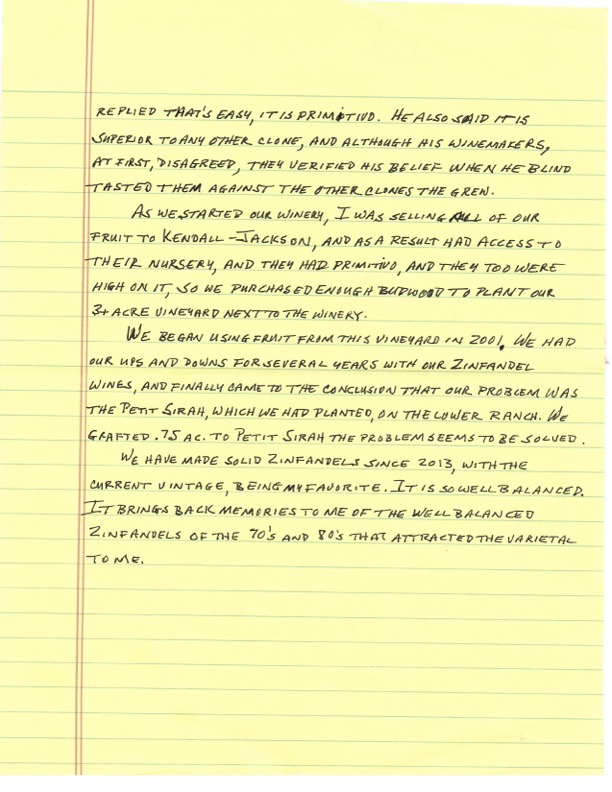 REPLIED THAT'S EASY, IT IS PRIMITIVO. HE ALSO SAID IT IS
SUPERIOR TO ANY OTHER CLONE, AND ALTHOUGH HIS WINEMAKERS,
AT FIRST, DISAGREED, THEY VERIFIED HIS BELIEF WHEN HE BLIND
TASTED THEM AGAINST THE OTHER CLONES THE GREW.
AS WE STARTED OUR WINERY, I WAS SELLING ALL OF OUR
FRUIT TO KENDALL-JACKSON, AND AS A RESULT HAD ACCESS TO
THEIR NURSERY, AND THEY HAD PRIMITIVO, AND THEY TOO WERE
HIGH ON IT, SO WE PURCHASED ENOUGH BUDWOOD TO PLANT OUR
3+ ACRE VINEYARD NEXT TO THE WINERY.
WE BEGAN USING FRUIT FROM THIS VINEYARD IN 2001. WE HAD
OUR UPS AND DOWNS FOR SEVERAL YEARS WITH OUR ZINFANDEL
WINES, AND FINALLY CAME TO THE CONCLUSION THAT OUR PROBLEM WAS
THE PETIT SIRAH, WHICH WE HAD PLANTED, ON THE LOWER RANCH. WE
GRAFTED .75 AC. TO PETIT SIRAH THE PROBLEM SEEMS TO BE SOLVED.
WE HAVE MADE SOLID ZINFANDELS SINCE 2013, WITH THE
CURRENT VINTAGE, BEING MY FAVORITE. IT IS SO WELL BALANCED.
IT BRINGS BACK MEMORIES TO ME OF THE WELL BALANCED
ZINFANDELS OF THE 70'S AND 80'S THAT ATTRACTED THE VARIETAL
TO ME.